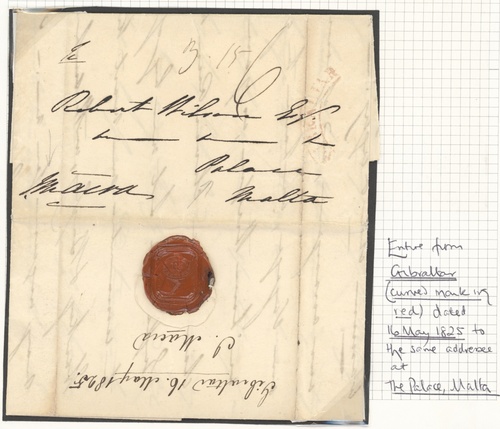 Robert Wilson Esq
Palace
Malta
Gibraltar 16. May 1825.
Entire from
Gibraltar
(curved marking
red) dated
16 May 1825 to
the same addressee
at
The Palace, Malta